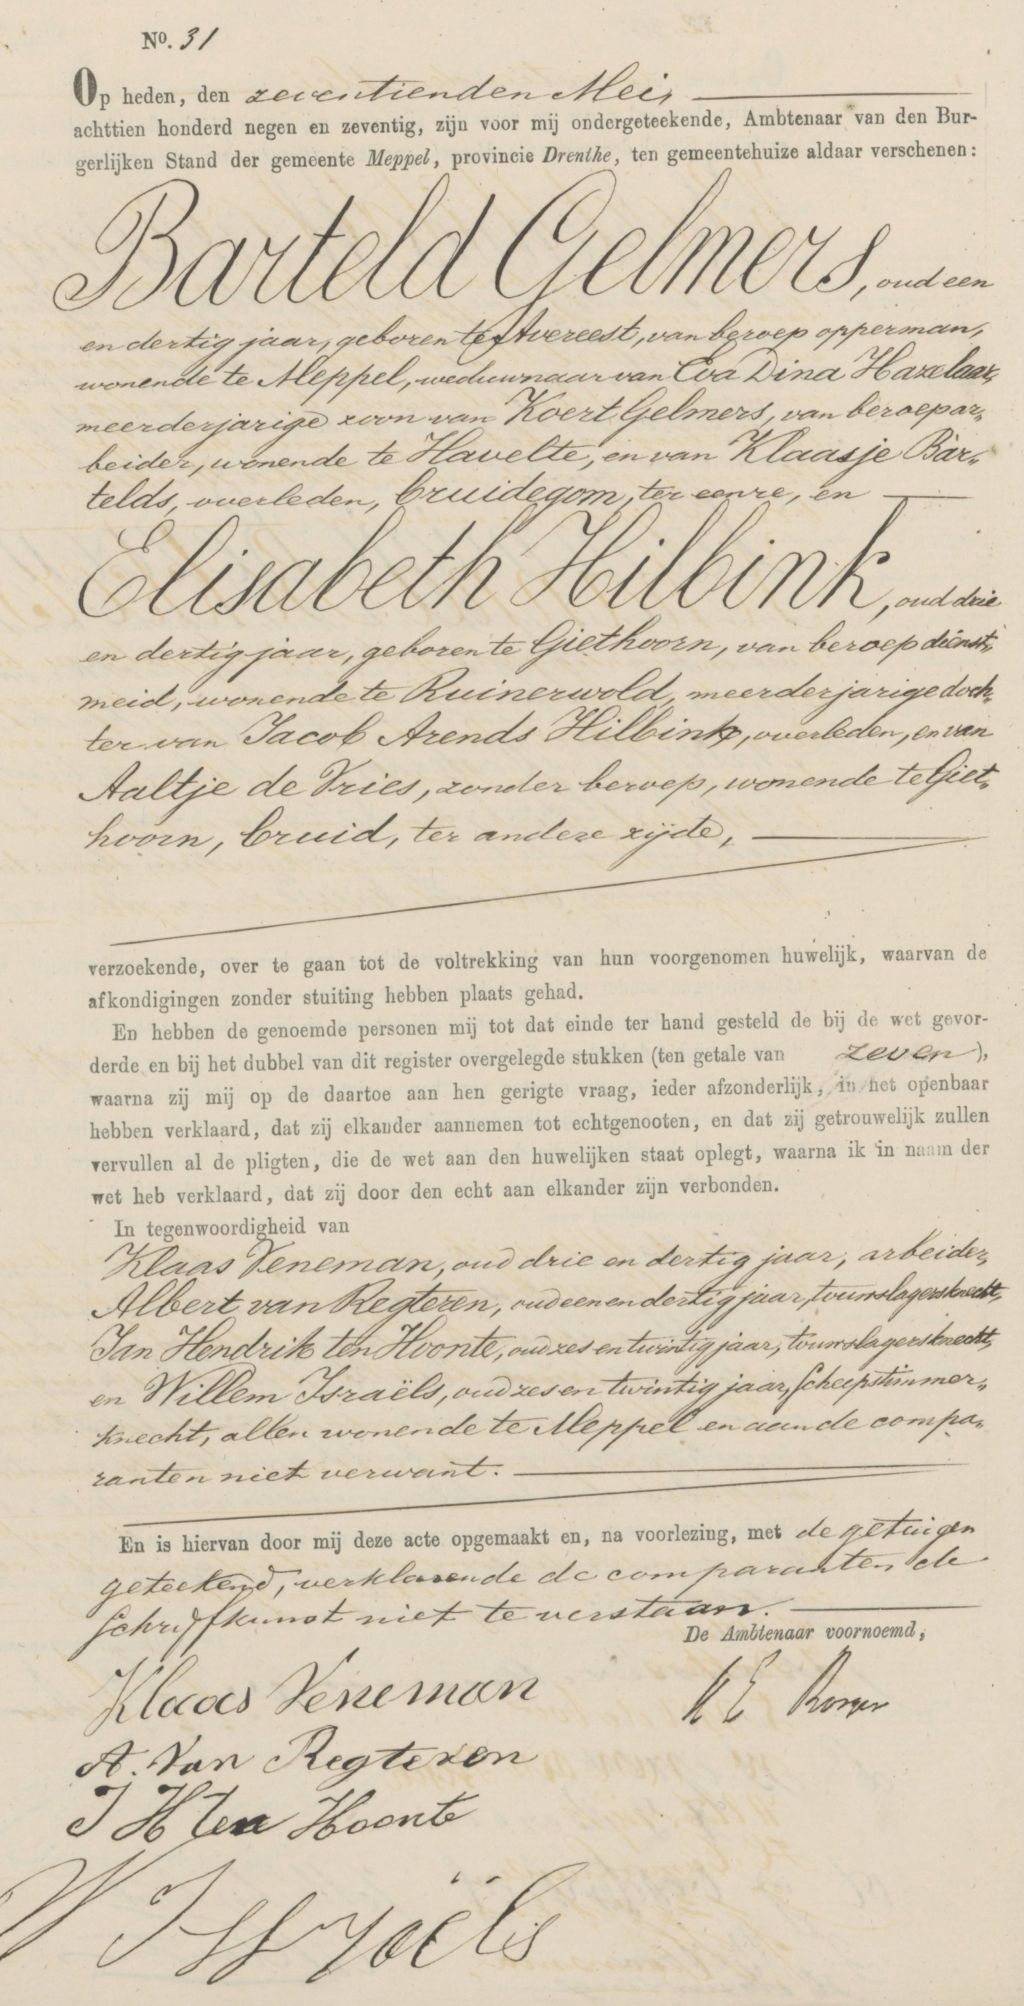 No. 31
Op heden, den zeventienden Mei,
achttien honderd negen en zeventig, zijn voor mij ondergeteekende, Ambtenaar van den Bur-
gerlijken Stand der gemeente Meppel, provincie Drenthe, ten gemeentehuize aldaar verschenen:
Barteld Gelmers, oud een
en dertig jaar, geboren te Avereest, van beroep opperman,
wonende te Meppel, weduwnaar van Eva Dina Hazelaar,
meerderjarige zoon van Koert Gelmers, van beroep ar-
beider, wonende te Havelte, en van Klaasje Bar-
telds, overleden, bruidegom, ter eenre, en
Elisabeth Hilbink, oud drie
en dertig jaar, geboren te Giethoorn, van beroep dienst-
meid, wonende te Ruinerwold, meerderjarige doch-
ter van Jacob Arends Hilbink, overleden, en van
Aaltje de Vries, zonder beroep, wonende te Giet-
hoorn, bruid, ter andere zijde,
verzoekende, over te gaan tot de voltrekking van hun voorgenomen huwelijk, waarvan de
afkondigingen zonder stuiting hebben plaats gehad.
En hebben de genoemde personen mij tot dat einde ter hand gesteld de bij de wet gevor-
derde en bij het dubbel van dit register overgelegde stukken (ten getale van zeven),
waarna zij mij op de daartoe aan hen gerigte vraag, ieder afzonderlijk, in het openbaar
hebben verklaard, dat zij elkander aannemen tot echtgenooten, en dat zij getrouwelijk zullen
vervullen al de pligten, die de wet aan den huwelijken staat oplegt, waarna ik in naam der
wet heb verklaard, dat zij door den echt aan elkander zijn verbonden.
In tegenwoordigheid van
Klaas Veneman, oud drie en dertig jaar, arbeider,
Albert van Regteren, oud een en dertig jaar, touwslagersknecht,
Jan Hendrik ten Hoonte, oud zes en twintig jaar, touwslagersknecht,
en Willem Israëls, oud zes en twintig jaar, scheepstimmer-
knecht, allen wonende te Meppel en aan de compa-
ranten niet verwant.
En is hiervan door mij deze acte opgemaakt en, na voorlezing, met de getuigen
geteekend, verklarende de comparanten de
schrijfkunst niet te verstaan.
De Ambtenaar voornoemd,
Klaas Veneman
A. Van Regteren
J H ten Hoonte
W Issraëls